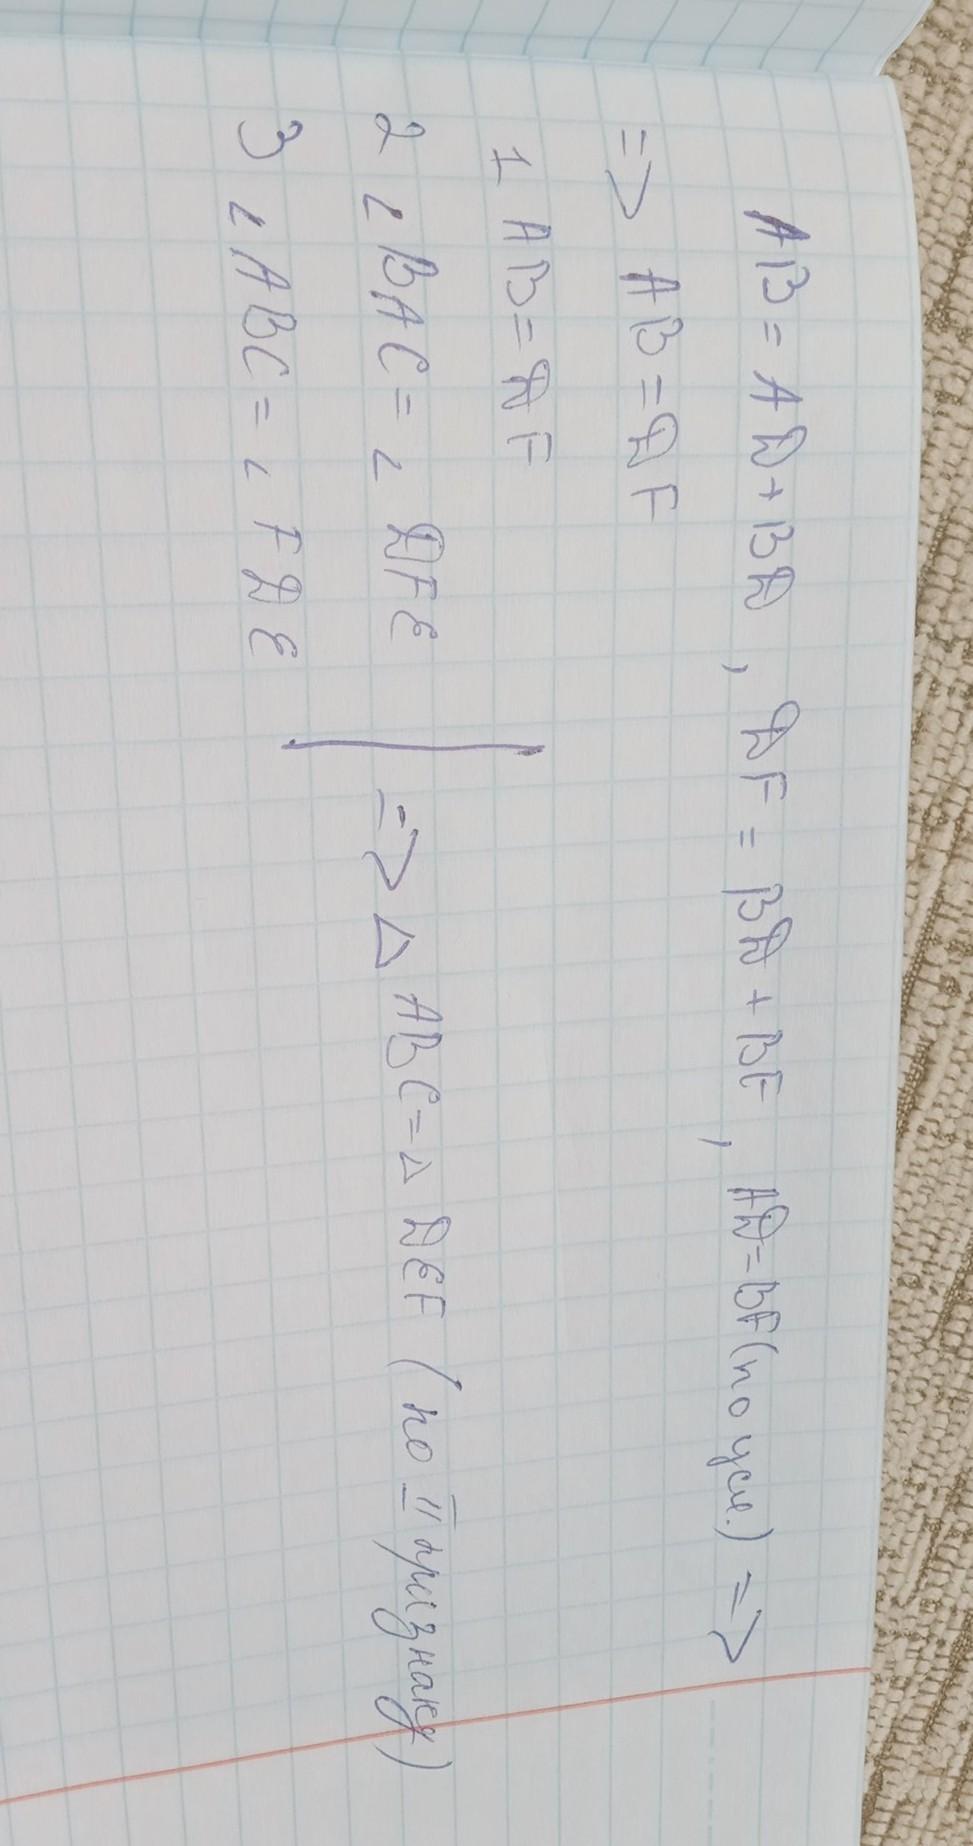 AB = AD + BD, DF = BD + BF, AD = BF (по усл.) =>
=> AB = DF
1 AB = DF
2 ∠ BAC = ∠ DFE
3 ∠ ABC = ∠ FDE
=> △ ABC = △ DEF (по II признаку)